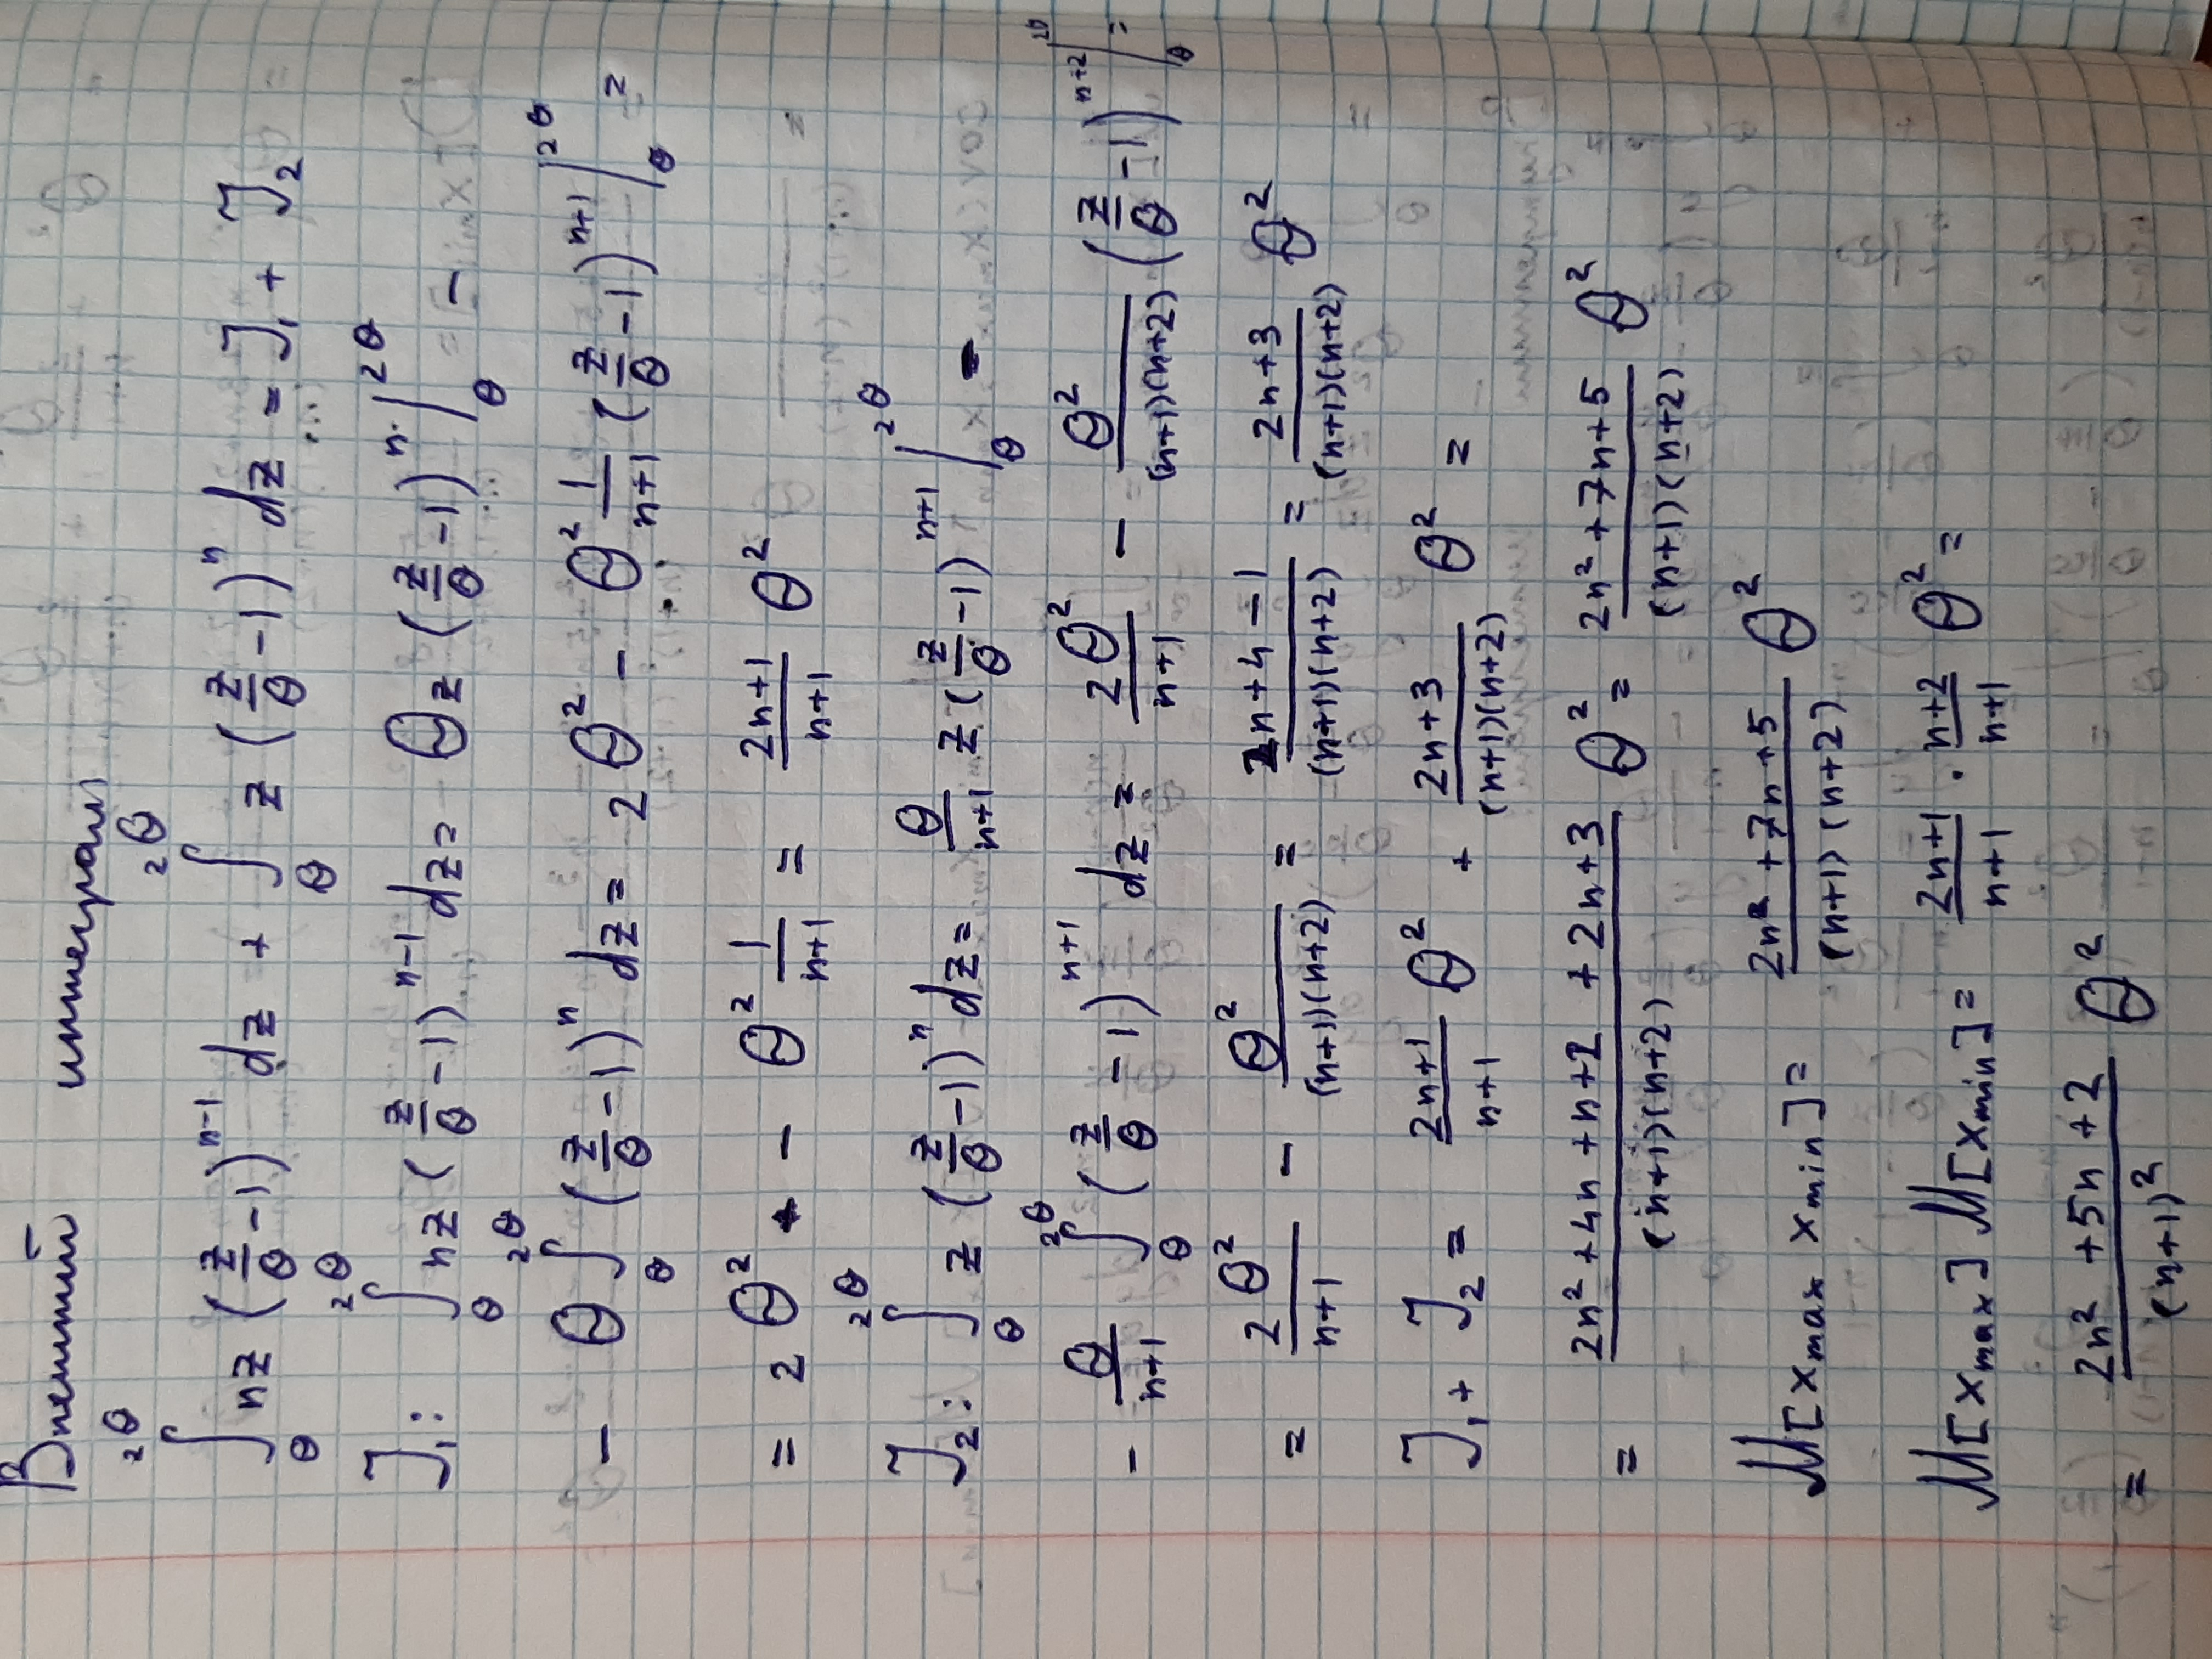 Внешний интеграл
∫_θ^{2θ} nz (z/θ - 1)^{n-1} dz + ∫_θ^{2θ} z (z/θ - 1)^n dz = J_1 + J_2
J_1: ∫_θ^{2θ} nz (z/θ - 1)^{n-1} dz = θz (z/θ - 1)^n |_θ^{2θ} -
- θ ∫_θ^{2θ} (z/θ - 1)^n dz = 2θ² - θ² 1/(n+1) (z/θ - 1)^{n+1} |_θ^{2θ} =
= 2θ² - θ² 1/(n+1) = (2n+1)/(n+1) θ²
J_2: ∫_θ^{2θ} z (z/θ - 1)^n dz = θ/(n+1) z (z/θ - 1)^{n+1} |_θ^{2θ} -
- θ/(n+1) ∫_θ^{2θ} (z/θ - 1)^{n+1} dz = 2θ²/(n+1) - θ²/((n+1)(n+2)) (z/θ - 1)^{n+2} |_θ^{2θ} =
= 2θ²/(n+1) - θ²/((n+1)(n+2)) = (2n+4-1)/((n+1)(n+2)) = (2n+3)/((n+1)(n+2)) θ²
J_1 + J_2 = (2n+1)/(n+1) θ² + (2n+3)/((n+1)(n+2)) θ² =
= (2n²+4n+n+2+2n+3)/((n+1)(n+2)) θ² = (2n²+7n+5)/((n+1)(n+2)) θ²
M[x_max x_min] = (2n²+7n+5)/((n+1)(n+2)) θ²
M[x_max] M[x_min] = (2n+1)/(n+1) · (n+2)/(n+1) θ² =
= (2n²+5n+2)/(n+1)² θ²